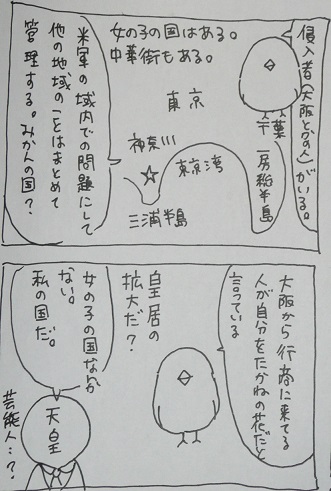 侵入者(大阪とかの人)がいる。
千葉
房総半島
女の子の国はある。
中華街もある。
東京
神奈川
東京湾
三浦半島
米軍の域内での問題にして
他の地域のことはまとめて
管理する。みかんの国?
大阪から行商に来てる
人が自分をたかねの花だと
言っている
皇居の
拡大だ?
女の子の国なんか
ない。
私の国だ。
天皇
芸能人…?